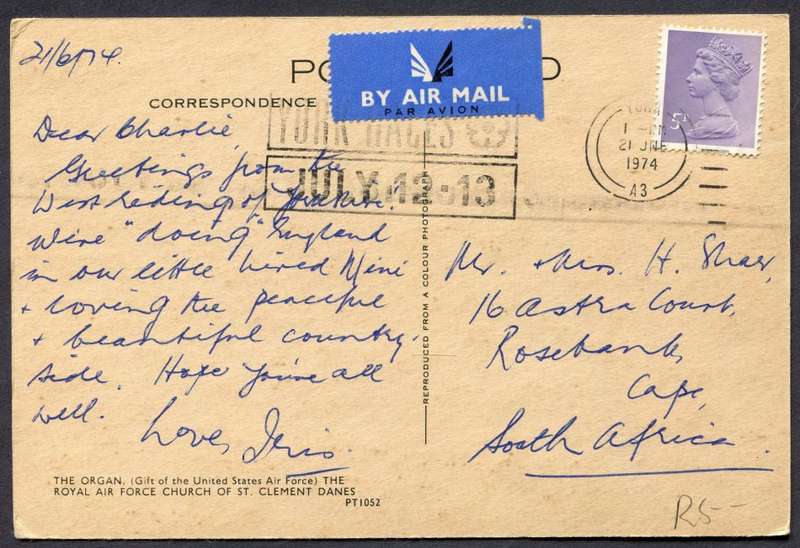 21/6/74.
PO D
CORRESPONDENCE
BY AIR MAIL
PAR AVION
YORK RACES
JULY 12-13
YORK
21 JNE
1974
A3
5P
Dear Charlie,
Greetings from the
West Riding of Yorkshire.
We're "doing" England
in our little hired Mini
+ loving the peaceful
+ beautiful country-
side. Hope you're all
well.
Love, Iris.
REPRODUCED FROM A COLOUR PHOTOGRAPH
Mr. + Mrs. H. Shaer,
16 Astra Court,
Rosebank,
Cape,
South Africa.
THE ORGAN. (Gift of the United States Air Force) THE
ROYAL AIR FORCE CHURCH OF ST. CLEMENT DANES
PT1052
R5-